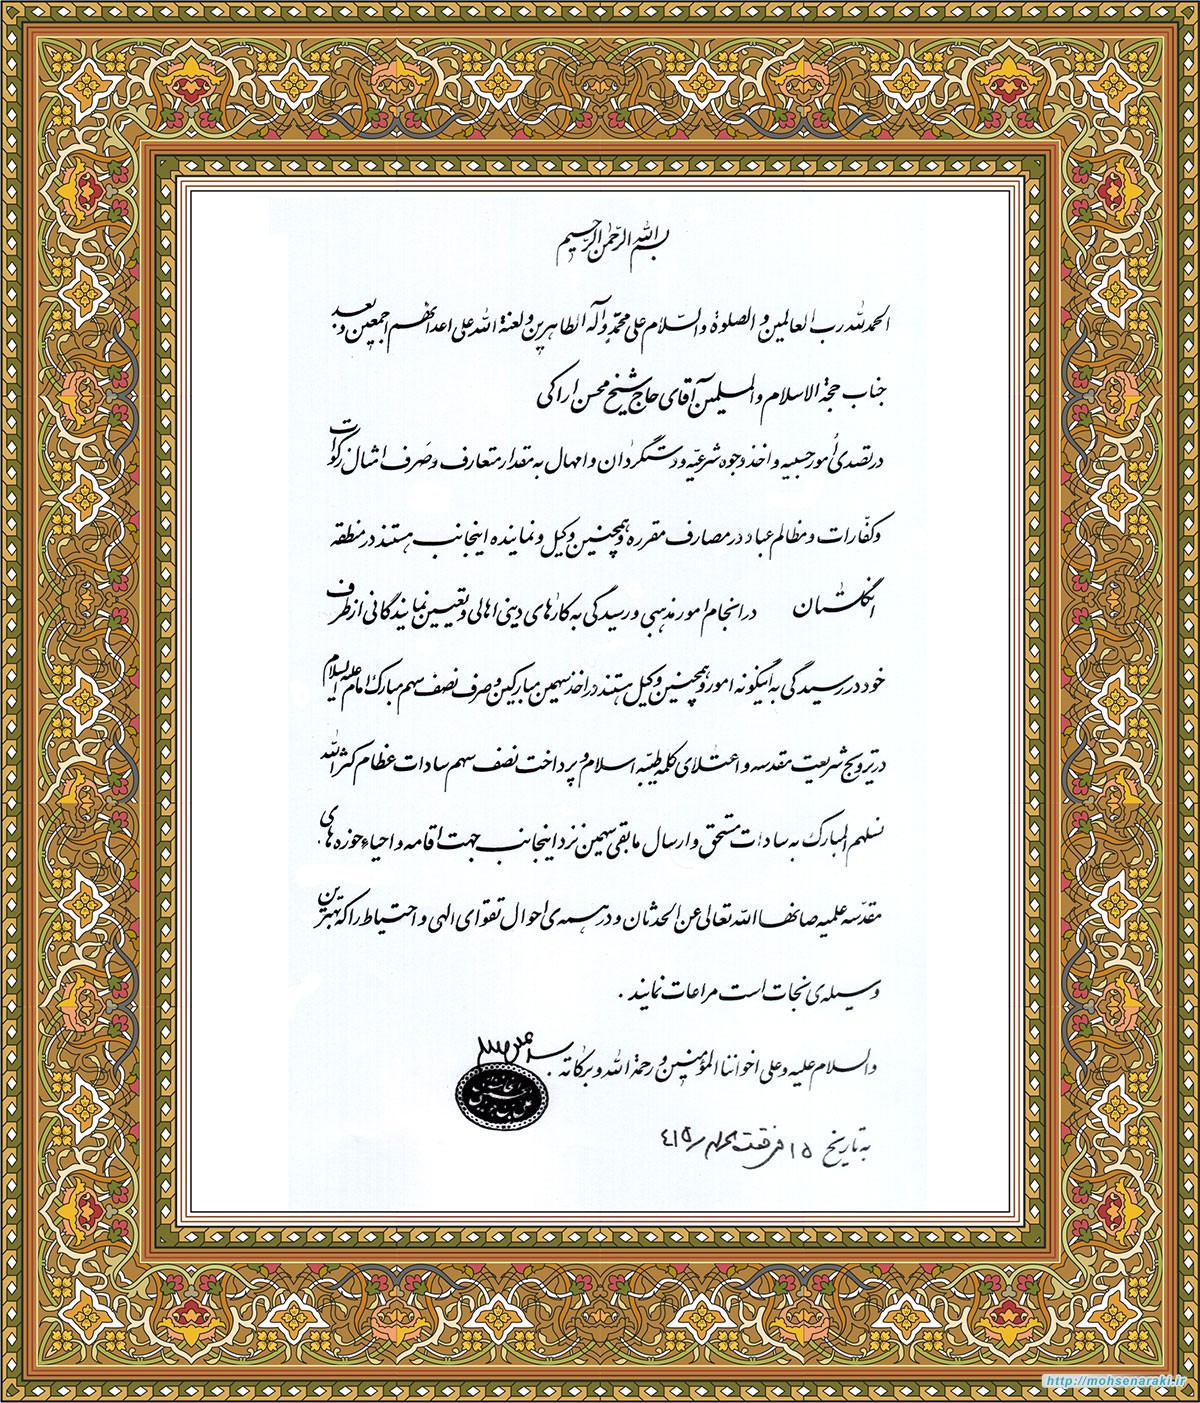 بسم الله الرحمن الرحیم
الحمد لله رب العالمین و الصلوة والسّلام علی محمّد وآله الطاهرین و لعنة الله علی اعدائهم اجمعین و بعد
جناب حجة الاسلام والمسلمین آقای حاج شیخ محسن اراکی
در تصدی اُمور حسبیه و اخذ وجوه شرعیّه و دستگردان و امهال به مقدار متعارف و صَرف امثال زکوات
و کفّارات و مظالم عباد در مصارف مقرره و همچنین وکیل و نماینده اینجانب هستند در منطقه
انگلستان در انجام امور مذهبی و رسیدگی به کارهای دینی اهالی و تعیین نمایندگانی از طرف
خود در رسیدگی به اینگونه امور و همچنین وکیل هستند در اخذ سهمین مبارکین و صرف نصف سهم مبارک امام علیه السلام
در ترویج شریعت مقدسه و اعتلای کلمه طیّبه اسلام و پرداخت نصف سهم سادات عظام کثر الله
نسلهم المبارک به سادات مستحق و ارسال مابقی سهمین نزد اینجانب جهت اقامه و احیاء حوزه های
مقدّسه علمیه صانها الله تعالی عن الحدثان و در همه ی احوال تقوای الهی و احتیاط را که بهترین
وسیله ی نجات است مراعات نمایند .
والسلام علیه وعلی اخواننا المؤمنین و رحمة الله و برکاته .
به تاریخ ۱۵ ۴۱۵
http://mohsenaraki.ir